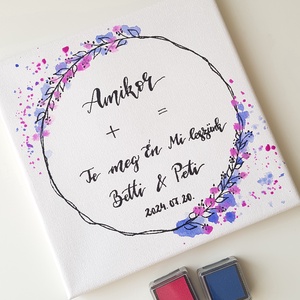 Amikor
+ =
Te meg Én Mi leszünk
Betti & Peti
2024.07.20.